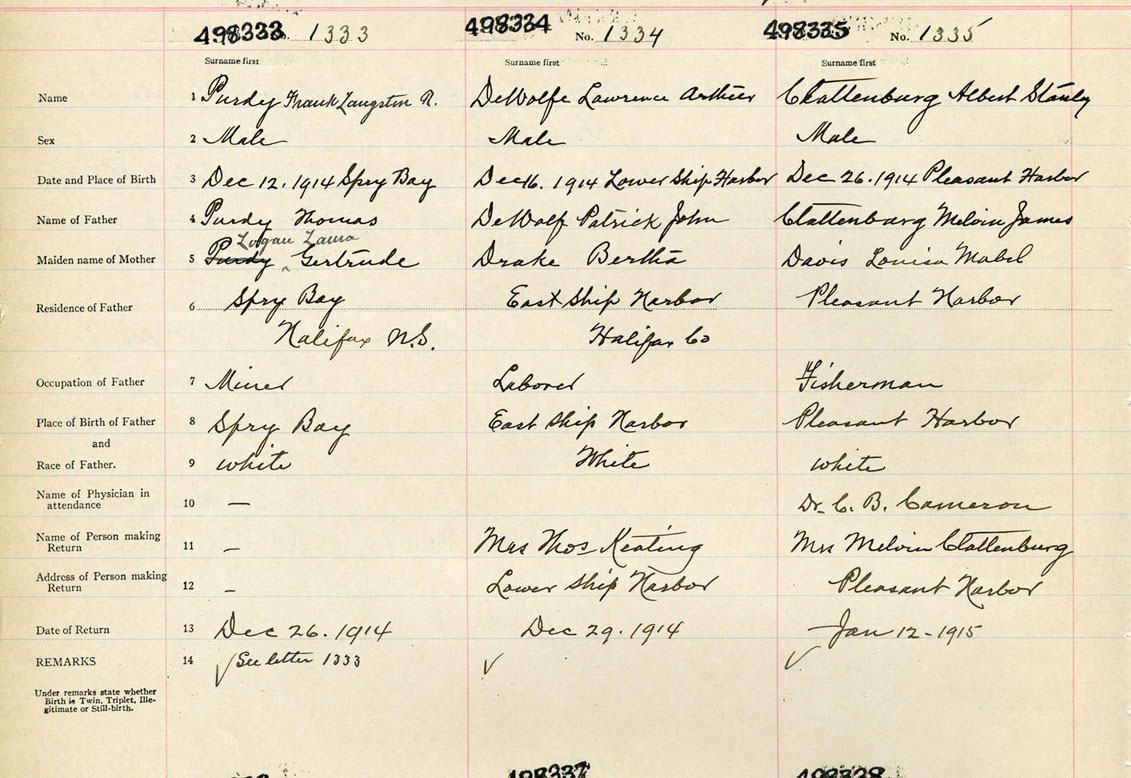 498333 No. 1333 498334 No. 1334 498335 No. 1335
Surname first Surname first Surname first
Name 1 Purdy Frank Langston R. DeWolfe Lawrence Arthur Clattenburg Albert Stanly
Sex 2 Male Male Male
Date and Place of Birth 3 Dec 12. 1914 Spry Bay Dec 16. 1914 Lower Ship Harbor Dec 26. 1914 Pleasant Harbor
Name of Father 4 Purdy Thomas DeWolf Patrick John Clattenburg Melvin James
Logan Laura
Maiden name of Mother 5 Purdy ^ Gertrude Drake Bertha Davis Louisa Mabel
Residence of Father 6 Spry Bay East Ship Harbor Pleasant Harbor
Halifax N.S. Halifax Co
Occupation of Father 7 Miner Laborer Fisherman
Place of Birth of Father 8 Spry Bay East Ship Harbor Pleasant Harbor
and
Race of Father. 9 white White white
Name of Physician in
attendance 10 — Dr. C. B. Cameron
Name of Person making
Return 11 — Mrs Thos Keating Mrs Melvin Clattenburg
Address of Person making
Return 12 – Lower Ship Harbor Pleasant Harbor
Date of Return 13 Dec 26. 1914 Dec 29. 1914 Jan 12-1915
REMARKS 14 ✓ See letter 1333 ✓ ✓
Under remarks state whether
Birth is Twin, Triplet, Ille-
gitimate or Still-birth.